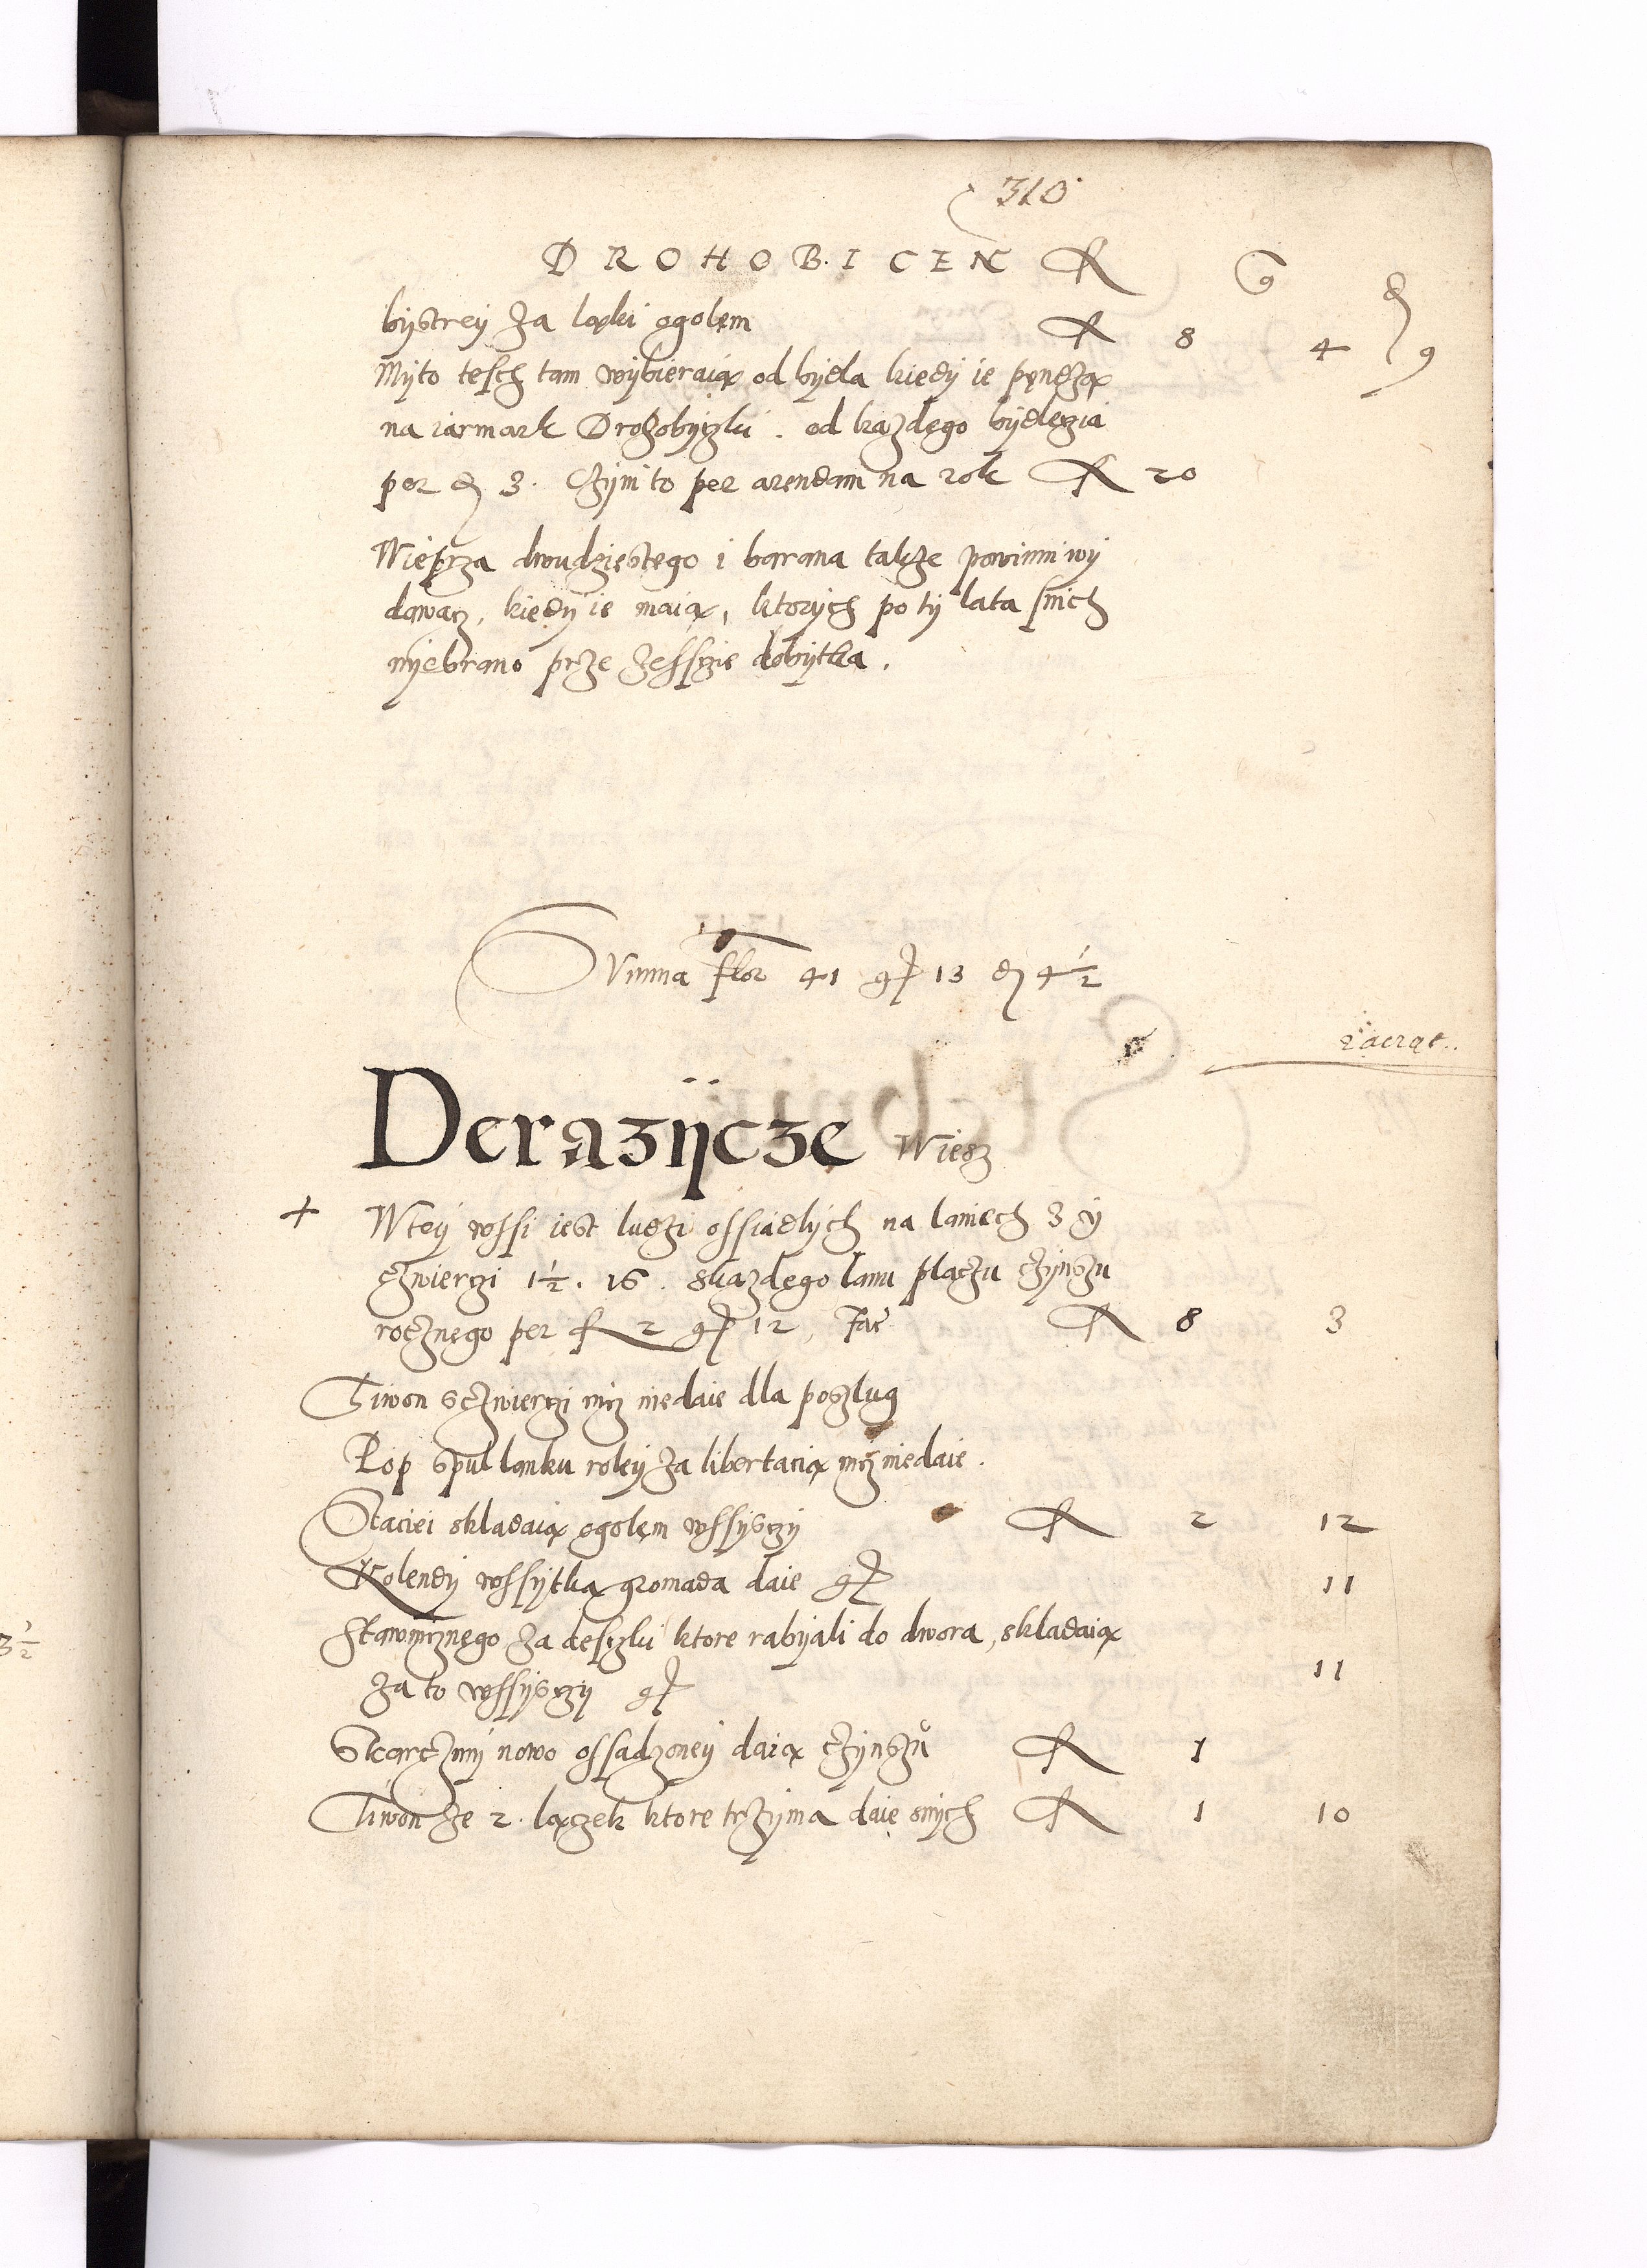 310
DROHOBICEN fl g d
bystrey za ląki ogolem fl 8 4 9
Myto tesch tam wybieraią od bydla kiedy ie pęndzą
na iarmark Drohobyczki . od kazdego bydlęczia
per d 3 . Czyni to per arendam na rok fl 20
Wieprza dwudziestego i barana takze powinni wy
dawacz , kiedy ie maią , ktorych po ty lata snich
nyebrano prze zesscie dobytka .
Summa flor 41 gr 13 d 4 1/2
Derazycze Wiesz
+ W tey wssi iest ludzi ossiadlych na laniech 3 y
czwierczi 1 1/2 . 16 . skazdego lanu placzu czynszu
rocznego per fl 2 gr 12 , Fac fl 8 3
Tiwon sczwierczi nicz niedaie dla poszlug
Pop spul lanku roley za libertacią nicz niedaie .
Staciei skladaią ogolem wssysczy fl 2 12
Kolendy wssytka gromada daie gr 11
Stawnicznego za desczki ktore rabyali do dwora , skladaią
za to wssysczy gr 11
Skarczmy nowo ossadzoney daią czynszu fl 1
Tiwon ze 2 . lączek ktore trzyma daie snych fl 1 10
3 1/2